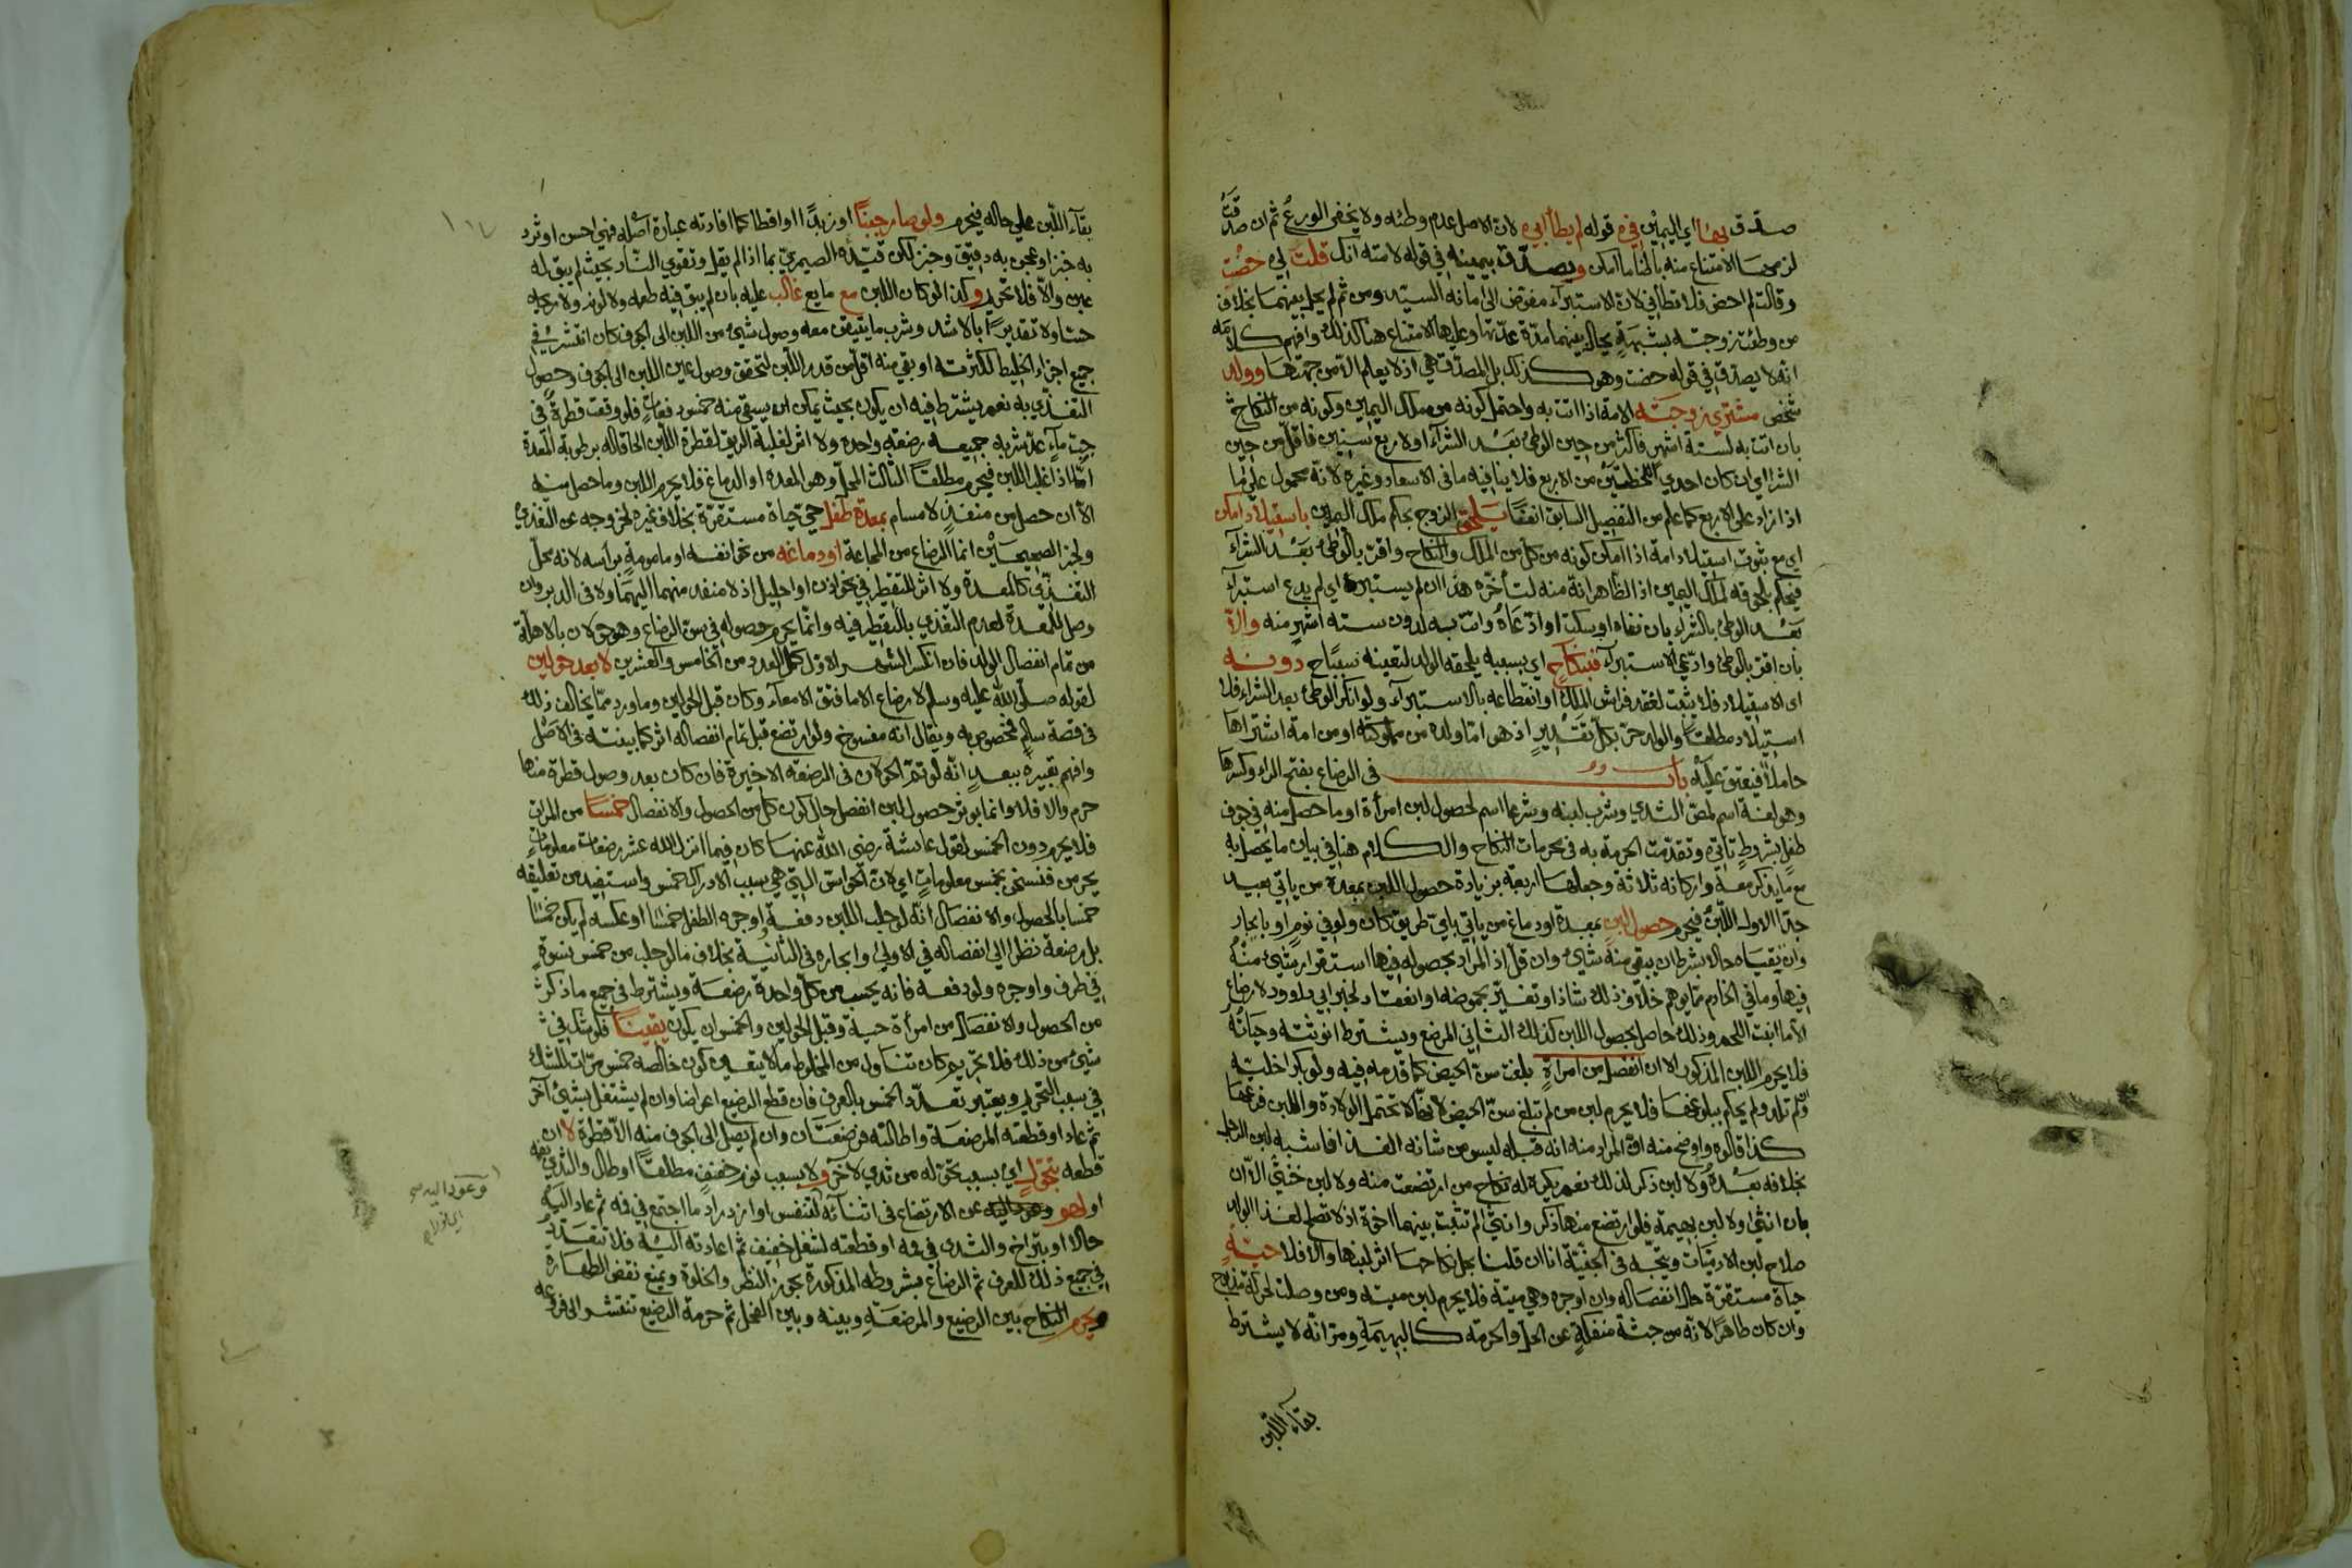 صدق بها اي اليمين في قوله لم يطأ ابي لان الاصل عدم وطئه ولا يخفى الورع ثم ان صدقت
لزمها الامتناع منه باطنا ما امكن ويصدق بيمينه في قوله لامته انك قلت لي حضت
وقالت لم احض فلا تطأني لان الاستبرآء مفوض الى امانة السيد ومن ثم لم يحل بينهما بخلاف
من وطئت زوجته بشبهة يحال بينهما مدة عدتها وعليها الامتناع هنا كذلك وافهم كلامه
انه لا يصدق في قوله حضت وهو كذلك بل المصدق هي اذ لا يعلم الا من جهتها وولد
شخص مشتري زوجته الامة اذا اتت به واحتمل كونه من ملك اليمين وكونه من النكاح
بان اتت به لستة اشهر فاكثر من حين الوطئ بعد الشرآء ولاربع سنين فاقل من حين
الشرا اي ان كان احدي اللحظتين من الاربع فلا ينافيه ما في الاسعاد وغيره لانه محمول على ما
اذا زاد على الاربع كما علم من التفصيل السابق انفقا يلحق الزوج بحكم ملك اليمين باستيلاد امكن
اي مع ثبوت استيلاد امة اذا امكن كونه من كل من الملك والنكاح واقر بالوطئ بعد الشرآء
فيحكم بلحوقه لملك اليمين اذ الظاهر انه منه لتأخره هذا ان لم يستبرء اي لم يدع استبرآء
بعد الوطئ بالشراء بان نفاه او سكت او ادعاه واتت به لدون ستة اشهر منه والا
بان اقر بالوطئ وادعى الاستبرآء فبنكاح اي بسببه يلحقه الولد لتعينه سببا ح دونه
اي الاستيلاد فلا يثبت لفقد فراش الملك او انقطاعه بالاستبرآء ولو انكر الوطئ بعد الشراء فلا
استيلاد مطلقا والولد حر بكل تقدير اذ هو اما ولده من مملوكته او من امة اشتراها
حاملا فيعتق عليه باب في الرضاع بفتح الراء وكسرها
وهو لغة اسم لمص الثدي وشرب لبنه وشرعا اسم لحصول لبن امرأة او ما حصل منه في جوف
طفل بشروط تاتي وتقدمت الحرمة به في محرمات النكاح والكلام هنا في بيان ما يحصل به
مع ما يذكر معه واركانه ثلاثة وجعلها اربعة بزيادة حصول اللبن بمعدة من ياتي بعيد
جدا الاول اللبن فيحرم حصول لبن بمعدة او دماغ من ياتي باي طريق كان ولو في نوم او بايجار
وان تقياه حالا بشرط ان يبقى منه شئ وان قل اذ المراد بحصوله فيها استقرار شئ منه
فيها وما في الخادم مما يوهم خلاف ذلك شاذ او تغير بحموضة او انعقاد لخبر ابي داوود لا رضاع
الا ما انبت اللحم وذلك حاصل بحصول اللبن كذلك الثاني المرضع ويشترط انوثته وحياته
فلا يحرم اللبن المذكور الا ان انفصل من امرأة بلغت سن الحيض كما قدمه فيه ولو بكرا خلية
ولم تلد ولم يحكم ببلوغها فلا يحرم لبن من لم تبلغ سن الحيض لانها لا تحتمل الولادة واللبن فرعها
كذا قالوه واوضح منه ان المراد منه انه قبله ليس من شانه الغذا فاشبه لبن الرجل
بخلافه بعده ولا لبن ذكر لذلك نعم يكره له نكاح من ارتضعت منه ولا لبن خنثى الا ان
بان انثى ولا لبن بهيمة فلو ارتضع منها ذكر وانثى لم تثبت بينهما اخوة اذ لا تصلح لغذا الولد
صلاح لبن الادميات ويتجه في الجنية انا ان قلنا بحل نكاحها اثر لبنها والا فلا حية
حياة مستقرة حال انفصاله وان اوجره وهي ميتة فلا يحرم لبن ميتة ومن وصلت لحركة مذبوح
وان كان طاهرا لانه من جثة منفكة عن الحل والحرمة كالبهيمة ومر انه لا يشترط
بقآء اللبن
بقآء اللبن على حاله فيحرم ولو صار جبنا او زبدا او اقطا كما افادته عبارة اصله فهي احسن او ثرد
به خبز او عجن به دقيق وخبز لكن قيده الصيمري بما اذا لم يقل وتقوى النار بحيث لم يبق له
عين والا فلا تحريم وكذا لو كان اللبن مع مايع غالب عليه بان لم يبق فيه طعم ولا لون ولا ريح
حسا ولا تقديرا بالاشد وشرب ما يتيقن معه وصول شئ من اللبن الى الجوف كان انتشر في
جميع اجزاء الخليط لكثرته او بقي منه اقل من قدر اللبن لتحقق وصول عين اللبن الى الجوف وحصول
التغذي به نعم يشترط فيه ان يكون بحيث يمكن ان يسقى منه خمس دفعات فلو وقعت قطرة في
حب مآء عد شربه جميعه رضعة واحدة ولا اثر لغلبة الريق لقطرة اللبن الحاقا له برطوبة المعدة
اما اذا غلب اللبن فيحرم مطلقا الثالث المحل وهو المعدة او الدماغ فلا يحرم اللبن وما حصل منه
الا ان حصل من منفذ لا مسام بمعدة طفل حي حياة مستقرة بخلاف غيره لخروجه عن التغذي
ولخبر الصحيحين انما الرضاع من المجاعة او دماغه من نحو انفه او مامومة براسه لانه محل
التغذي كالمعدة ولا اثر للتقطير في نحو اذن او احليل اذ لا منفذ منهما اليهما ولا في الدبر وان
وصل للمعدة لعدم التغذي بالتقطير فيه وانما يحرم حصوله في سن الرضاع وهو حولان بالاهلة
من تمام انفصال الولد فان انكسر الشهر الاول كمل العدد من الخامس والعشرين لا بعد حولين
لقوله صلى الله عليه وسلم لا رضاع الا ما فتق الامعآء وكان قبل الحولين وما ورد مما يخالف ذلك
في قصة سالم مخصوص به ويقال انه منسوخ ولو ارتضع قبل تمام انفصاله اثر كما بينته في الاصل
وافهم تعبيره ببعد انه لو تم الحولان في الرضعة الاخيرة فان كان بعد وصول قطرة منها
حرم والا فلا وانما يوثر حصول لبن انفصل حال كون كل من الحصول والانفصال خمسا من المرات
فلا يحرم دون الخمس لقول عائشة رضي الله عنها كان فيما انزل الله عشر رضعات معلومات
يحرمن فنسخن بخمس معلومات اي لان الحواس التي هي سبب الادراك خمس واستفيد من تعليقه
خمسا بالحصول والانفصال انه لو حلب اللبن دفعة واوجره الطفل خمسا او عكسه لم يكن خمسا
بل رضعة نظرا الى انفصاله في الاولى وايجاره في الثانية بخلاف ما لو حلب من خمس نسوة
في ظرف واوجره ولو دفعة فانه يحسب من كل واحدة رضعة ويشترط في جميع ما ذكر
من الحصول والانفصال من امرأة حية وقبل الحولين والخمس ان يكون يقينا فلو شك في
شئ من ذلك فلا تحريم كان تناول من المخلوط ما لا يتيقن كون خالصه خمس مرات للشك
في سبب التحريم ويعتبر تعدد الخمس بالعرف فان قطع الرضيع اعراضا وان لم يشتغل بشئ آخر
ثم عاد او قطعته المرضعة واطالته فرضعتان وان لم يصل الى الجوف منه الا قطرة لا ان
قطعه بتحول اي بسبب تحوله من ثدي لآخر ولا بسبب نوم خفيف مطلقا او طال والثدي بفمه
او لهو عن الارتضاع في اثنآئه لتنفس او ازدراد ما اجتمع في فمه ثم عاد اليه
حالا او بتراخ والثدي في فمه او قطعته لشغل خفيف ثم اعادته اليه فلا تتعدد
في جميع ذلك للعرف ثم الرضاع بشروطه المذكورة يجوز النظر والخلوة ويمنع نقض الطهارة
ويحرم النكاح بين الرضيع والمرضعة وبينه وبين الفحل ثم حرمة الرضيع تنتشر الى فروعه